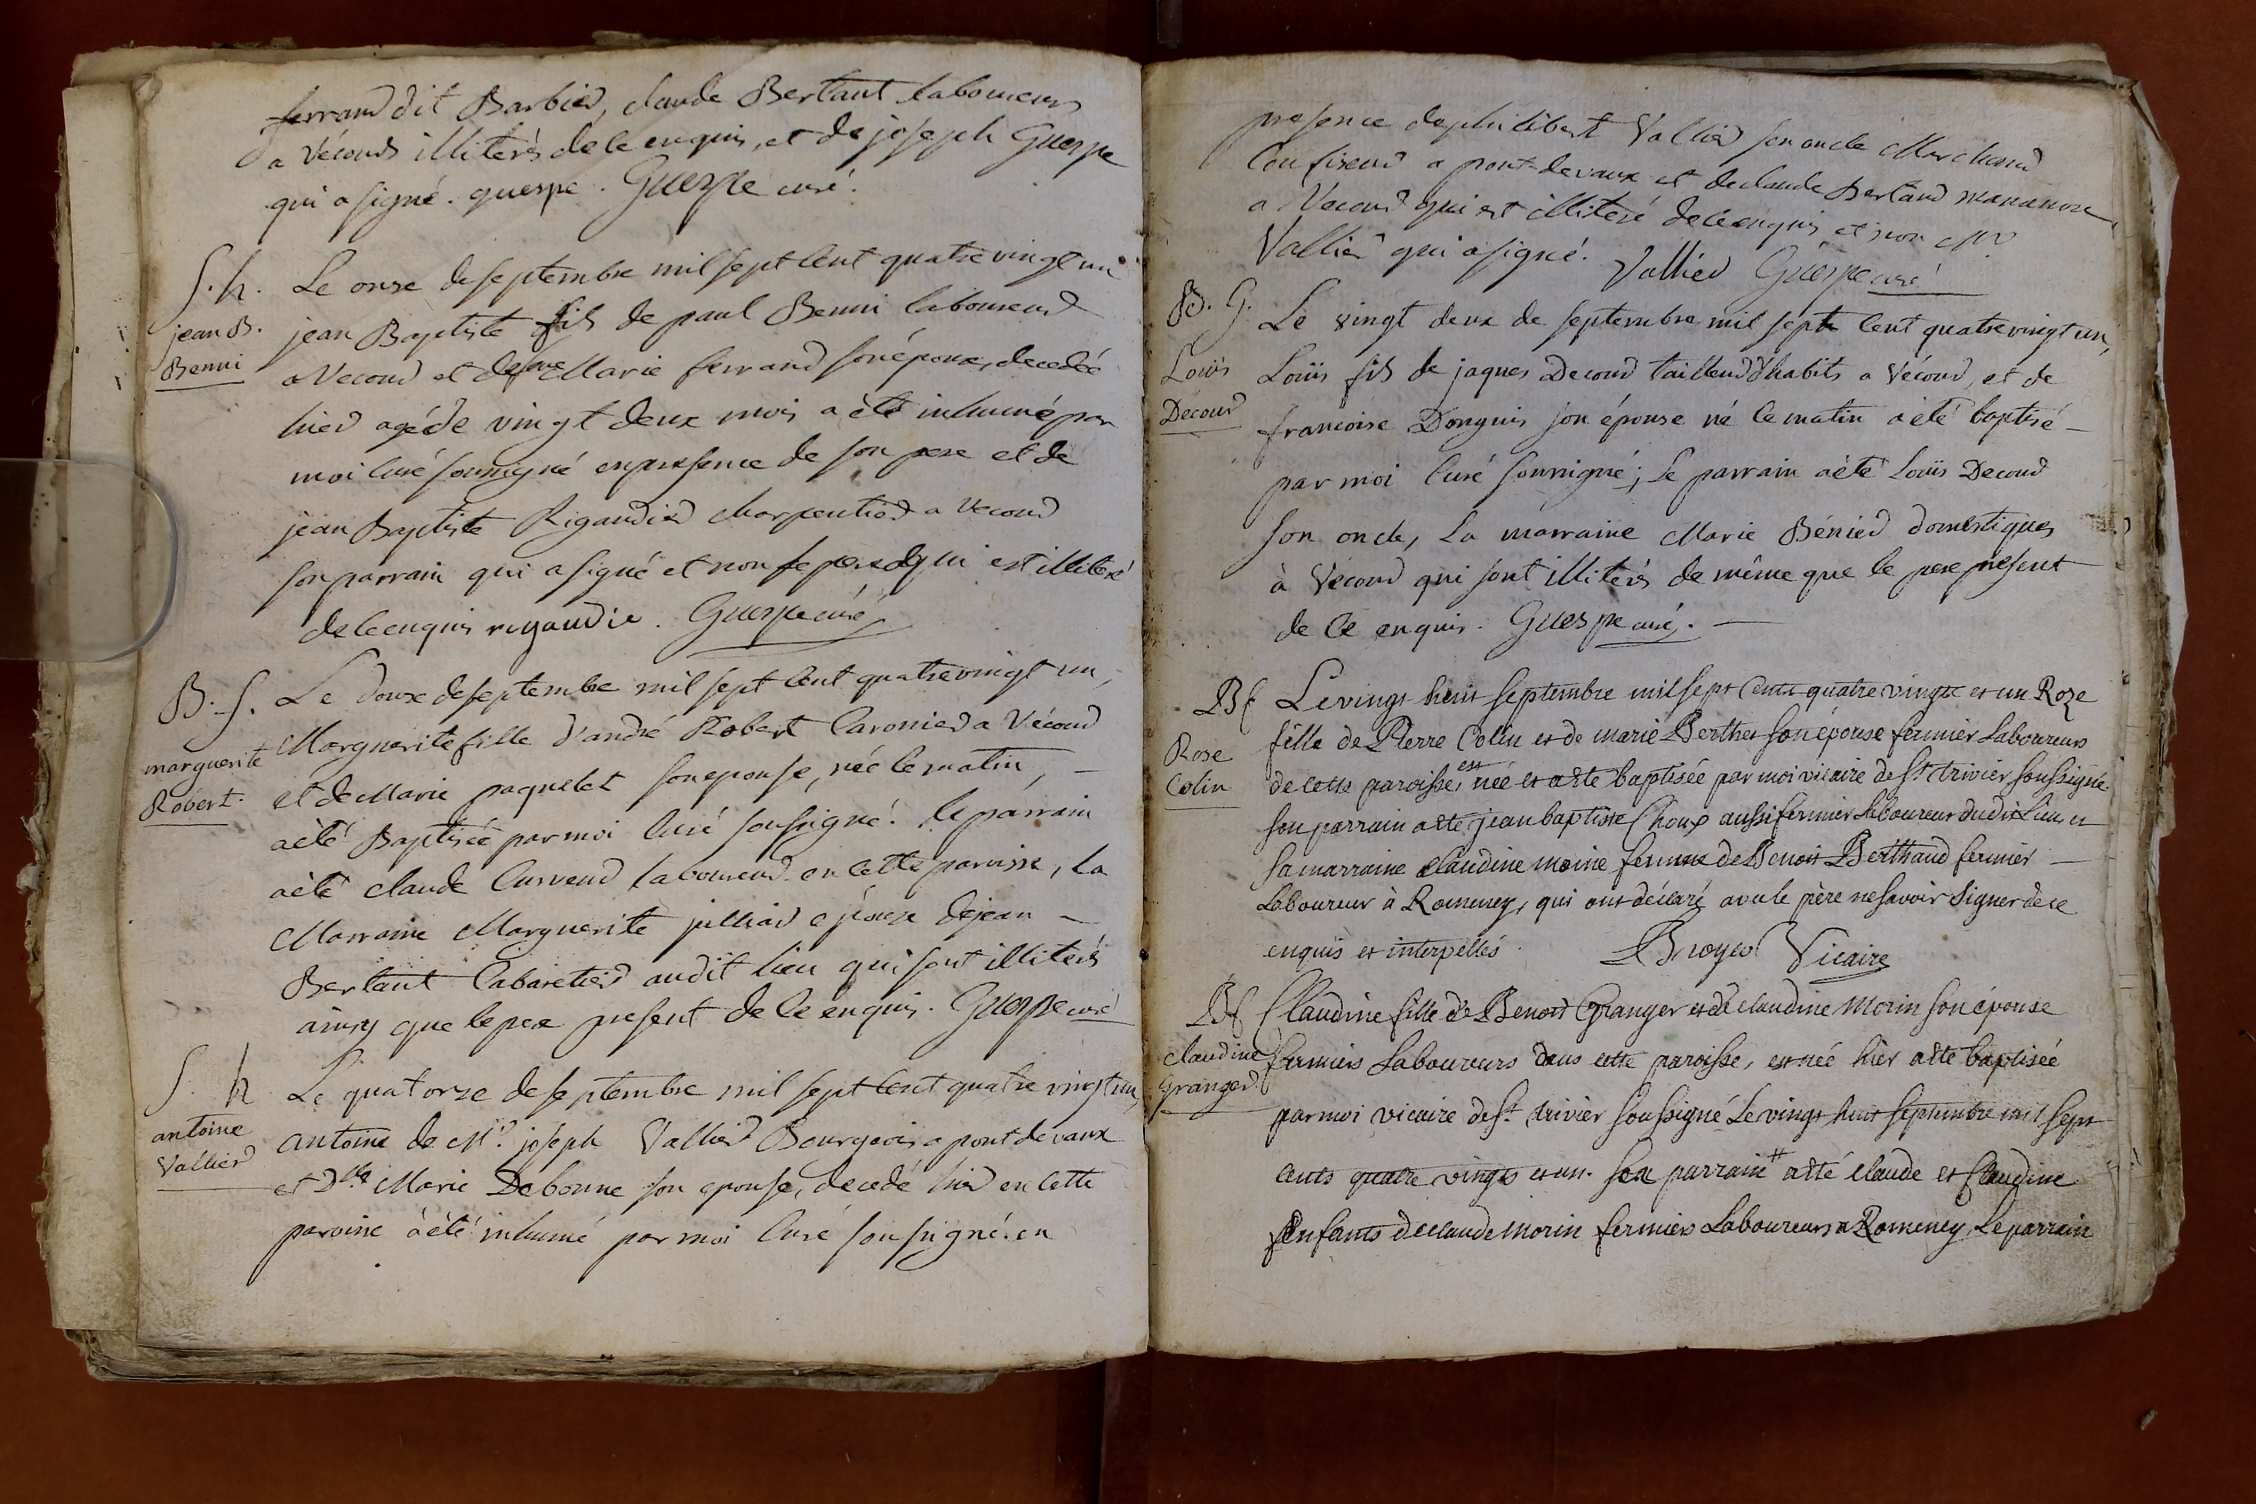 ferrand dit Barbier, claude Bertaut laboureurs
a Vécours illiterés de ce enquis, et de joseph Guespe
qui a signé. guespe. Guespe curé.
S. h.
jean B.
Benni
Le onze de septembre mil sept cent quatre vingt un
jean Baptiste fils de paul Benni laboureur
a Vecour et de Marie ferrand son épouse, decedé
hier agé de vingt deux mois a été inhumé par
moi curé soussigné en presence de son pere et de
jean Baptiste Rigaudier charpentier a Vecour
son parrain qui a signé et non le pere qui est illiteré
de ce enquis rigaudie. Guespe curé
B. f.
marguerite
Robert.
Le douze de septembre mil sept cent quatre vingt un,
Marguerite fille d'andré Robert Caronier a Vécour
et de Marie paquelet son epouse, née ce matin,
a été Baptisée par moi curé soussigné. le parrain
a été claude Curveur laboureur en cette paroisse, la
Marraine Marguerite jullier épouse de jean
Bertaut Cabaretier audit lieu qui sont illiterés
ainsy que le pere present de ce enquis. Guespe curé
S. h
antoine
Vallier
Le quatorze de septembre mil sept cent quatre vingt un,
antoine de Mr. joseph Vallier Bourgeois a pont de vaux
et Dlle Marie Debonne son epouse, decedé hier en cette
paroisse a été inhumé par moi curé soussigné en
presence de philibert Vallier son oncle Marchand
Confiseur a pont-de vaux et de claude Bertaud manœuvre
a Vecour qui est illiteré de ce enquis et non Mr.
Vallier qui a signé. Vallier Guespe curé
B. G.
Loüis
Décour
Le vingt deux de septembre mil sept cent quatre vingt un,
Loüis fils de jaques Decour tailleur d'habits a Vécour, et de
francoise Donguis son épouse né ce matin a été baptisé
par moi curé soussigné; le parrain a été Loüis Decour
son oncle, la marraine Marie Bénier domestiques
à Vecour qui sont illiterés de même que le pere present
de ce enquis. Guespe curé.
Bf
Rose
Colin
Le vingt huit septembre mil sept cents quatre vingts et un Roze
fille de Pierre Colin et de marie Berthet son épouse fermier Laboureurs
de cette paroisse, est née et a été baptisée par moi vicaire de St trivier soussigné
son parrain a été jean baptiste Choux aussi fermier Laboureur dudit Lieu, et
sa marraine claudine moine femme de Benoit Berthaud fermier
Laboureur à Romeney, qui ont déclaré avec le père ne savoir signer de ce
enquis et interpellés. Broyer Vicaire
Bf
claudine
Granger
Claudine fille de Benoit Granger et de claudine Morin son épouse
fermiers Laboureurs dans cette paroisse, est née hier a été baptisée
par moi vicaire de St. trivier soussigné Le vingt huit septembre mil sept
cents quatre vingts et un. son parrain # a été claude et Claudine
Enfants de claude Morin fermiers Laboureurs a Romeney, Le parrain